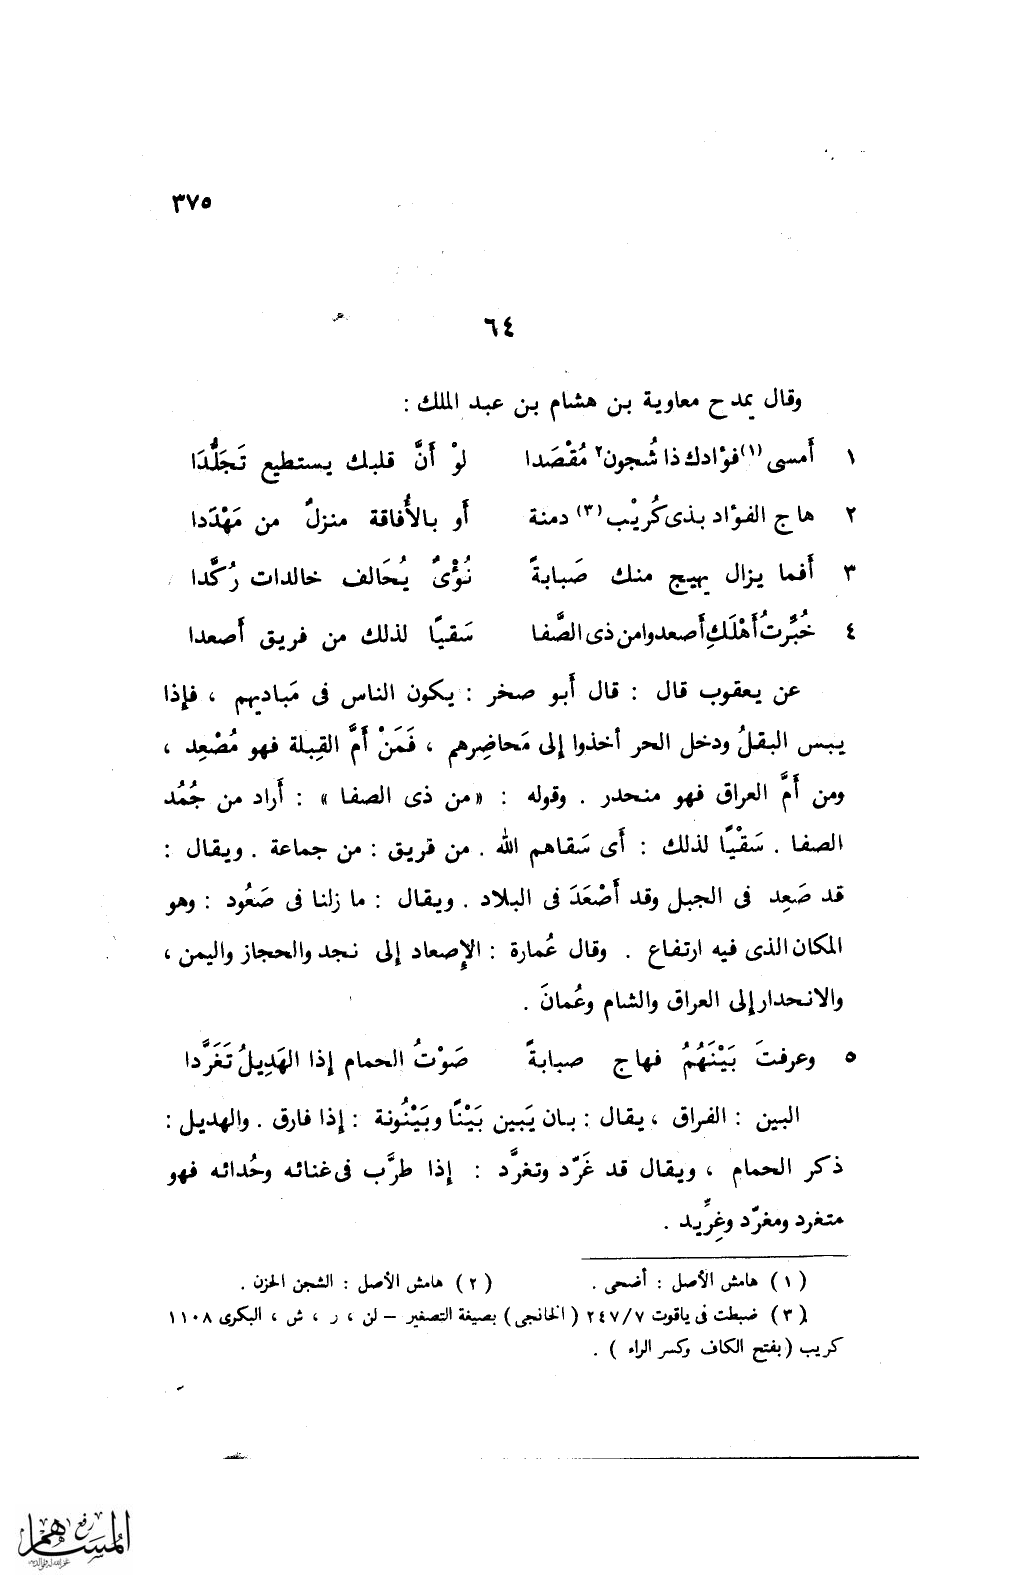 ٣٧٥
٦٤
وقال يمدح معاوية بن هشام بن عبد الملك :
١ أَمسى (١) فؤادك ذا شُجون٢ مُقْصَدا لوْ أَنَّ قلبك يستطيع تَجَلُّدَا
٢ هاج الفؤاد بذى كُرَيْب (٣) دمنة أو بالأُفاقة منزلٌ من مَهْدَدا
٣ أَفما يزال يهيج منك صَبابةً نُؤْىٌ يُحَالف خالدات رُكَّدا
٤ خُبِّرتُ أَهْلَكِ أَصعدوا من ذى الصَّفا سَقيًا لذلك من فريق أَصعدا
عن يعقوب قال : قال أَبو صخر : يكون الناس فى مَباديهم ، فإذا
يبس البقلُ ودخل الحر أخذوا إلى مَحاضِرهم ، فَمَنْ أَمَّ القِبلة فهو مُصْعِد ،
ومن أَمَّ العراق فهو منحدر . وقوله : « من ذى الصفا » : أَراد من جُمُد
الصفا . سَقْيًا لذلك : أَى سَقاهم الله . من فريق : من جماعة . ويقال :
قد صَعِد فى الجبل وقد أَصْعَدَ فى البلاد . ويقال : ما زلنا فى صَعُود : وهو
المكان الذى فيه ارتفاع . وقال عُمارة : الإصعاد إلى نجد والحجاز واليمن ،
والانحدار إلى العراق والشام وعُمانَ .
٥ وعرفتَ بَيْنَهُمُ فهاج صبابةً صَوْتُ الحمام إذا الهَدِيلُ تَغَرَّدا
البين : الفراق ، يقال : بان يَبين بَيْنًا وبَيْنُونة : إذا فارق . والهديل :
ذكر الحمام ، ويقال قد غَرّد وتغرَّد : إذا طرَّب فى غنائه وحُدائه فهو
متغرد ومغرّد وغِرِّيد .
(١) هامش الأصل : أضحى . (٢) هامش الأصل : الشجن الحزن .
(٣) ضبطت فى ياقوت ٢٤٧/٧ (الخانجى) بصيغة التصغير – لن ، ر ، ش ، البكرى ١١٠٨
كريب (بفتح الكاف وكسر الراء ) .